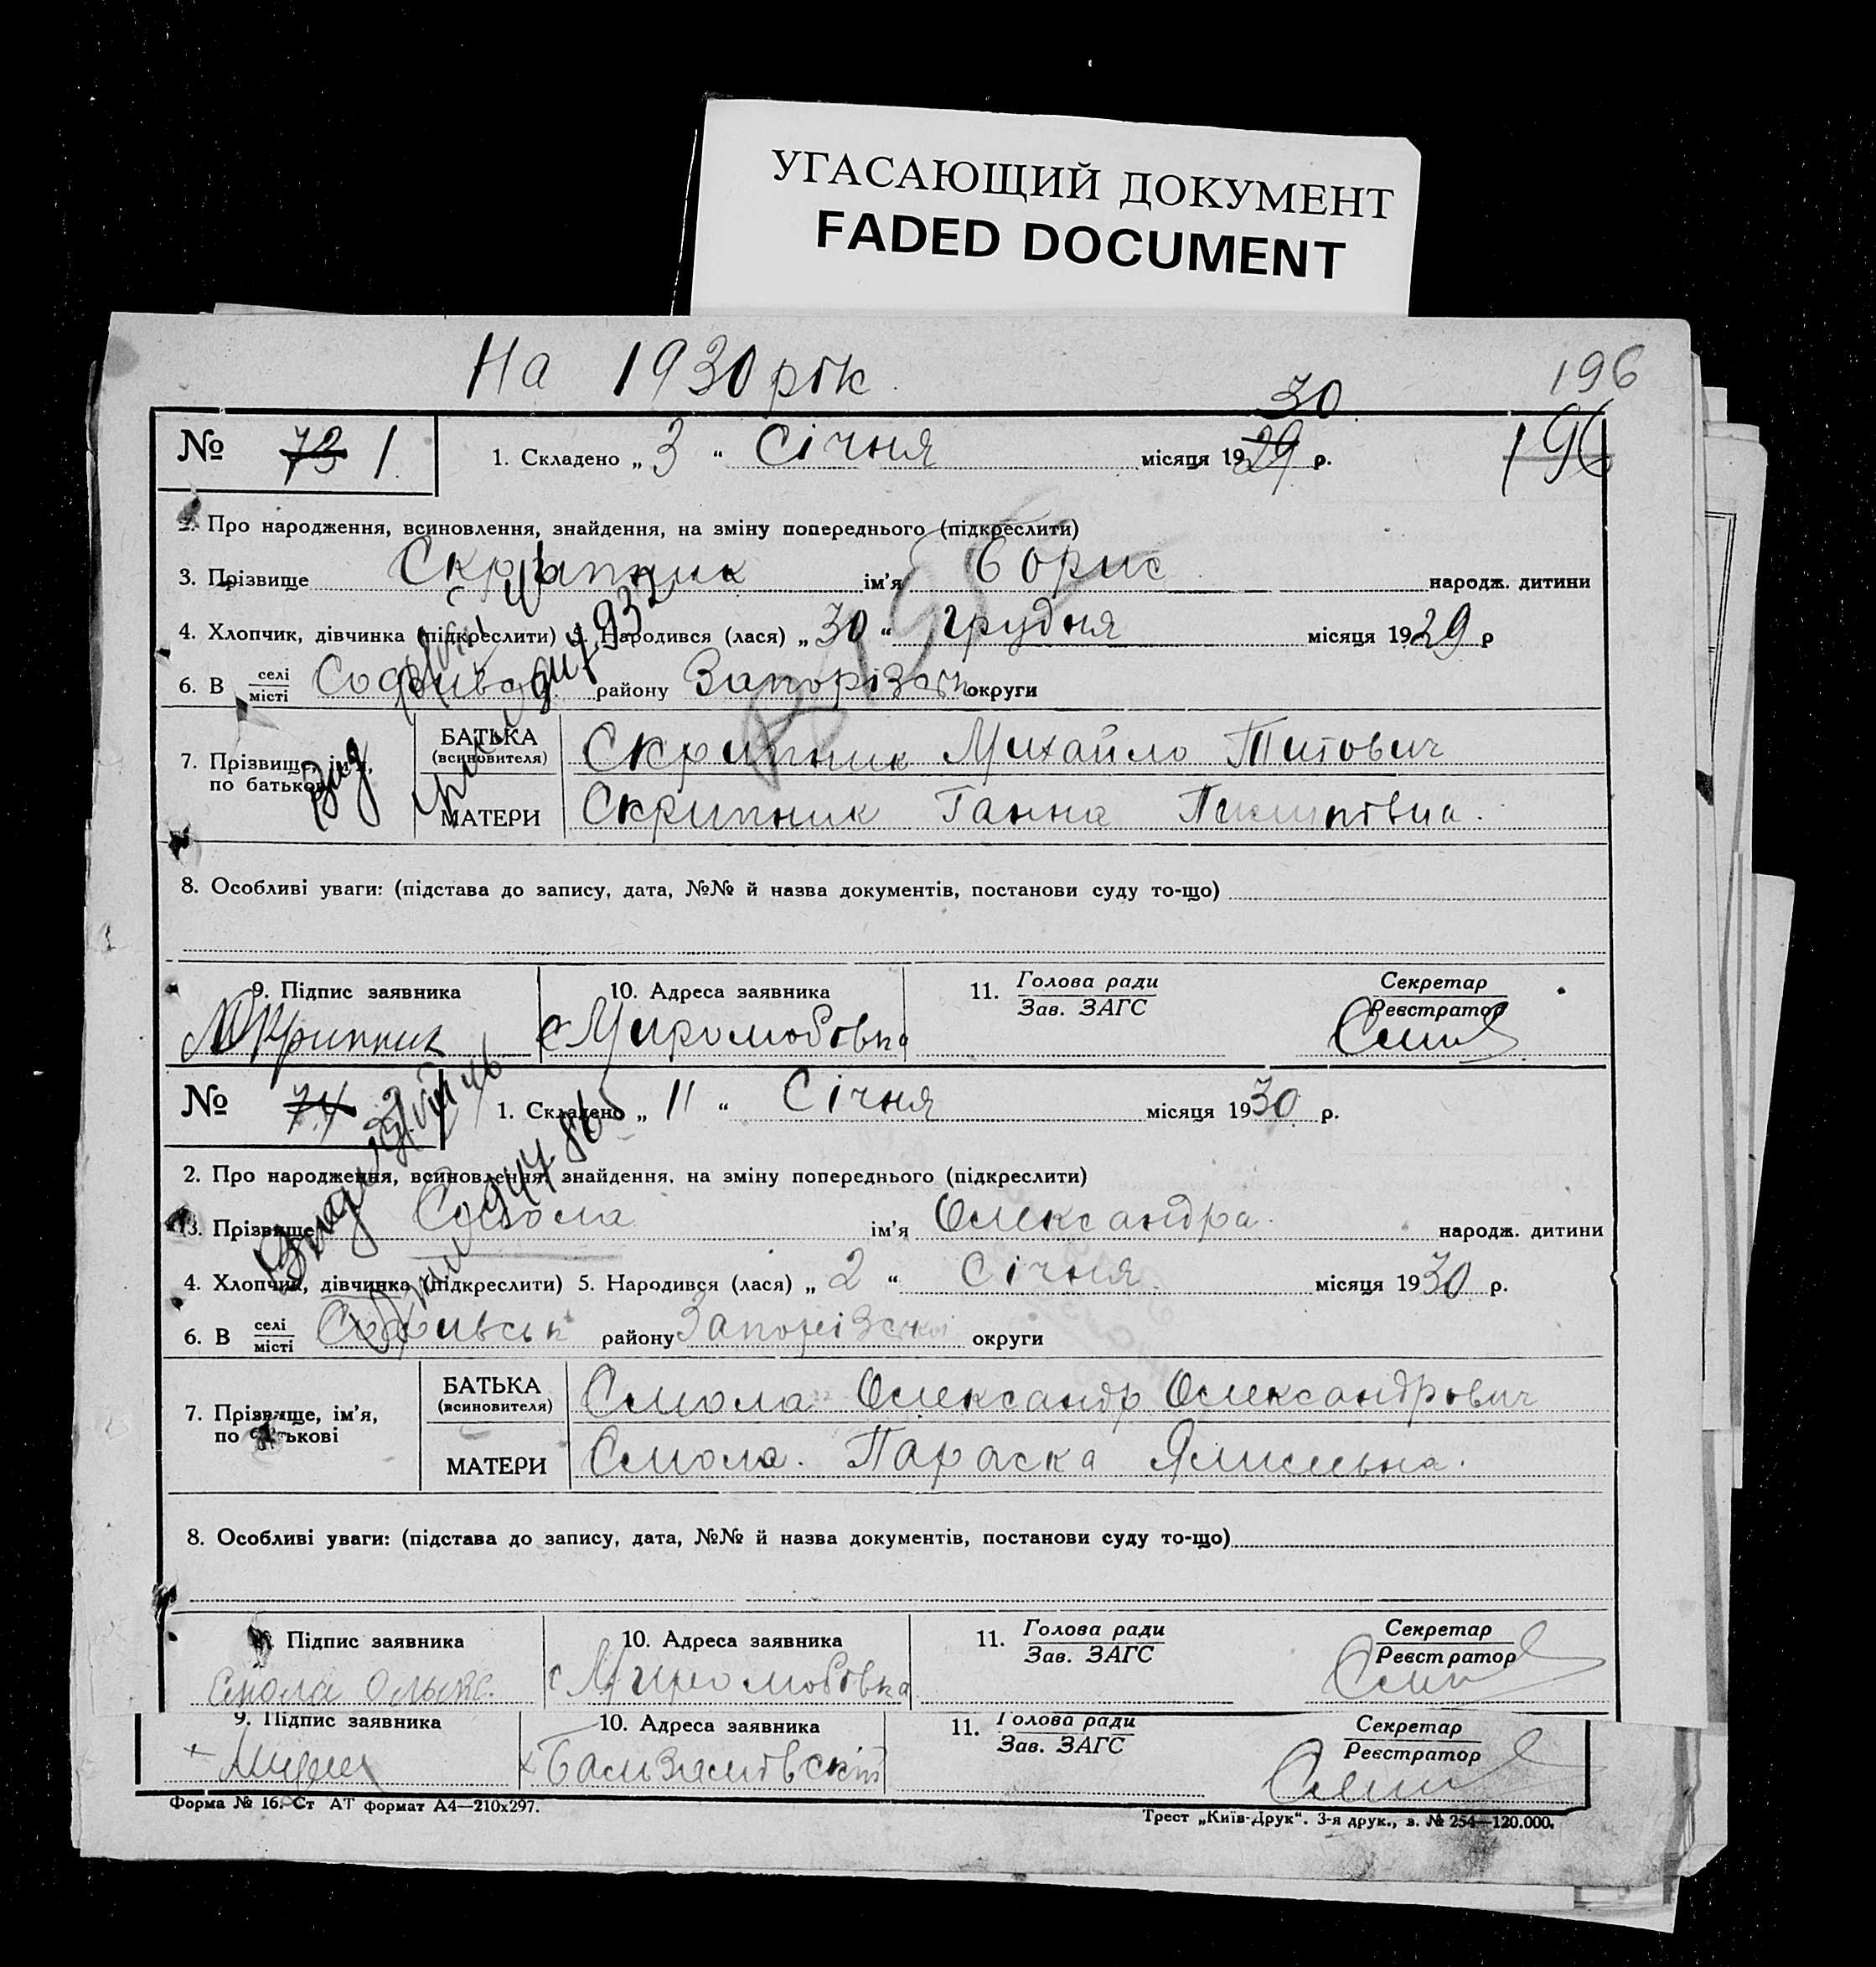 УГАСАЮЩИЙ ДОКУМЕНТ
FADED DOCUMENT
На 1930 рік
196
30
№ 73 1. 1. Складено „ 3 “ Січня місяця 1929 р. 196
2. Про народження, всиновлення, знайдення, на зміну попереднього (підкреслити)
3. Прізвище Скрипник ім'я Борис народж. дитини
4. Хлопчик, дівчинка (підкреслити) 5. Народився (лася) „ 30 “ грудня місяця 1929 р
6. В селі
місті району Запорізськ округи
7. Прізвище, ім'я,
по батькові
БАТЬКА
(всиновителя)
Скрипник Михайло Титович
МАТЕРИ Скрипник Ганна Пилипівна.
8. Особливі уваги: (підстава до запису, дата, №№ й назва документів, постанови суду то-що)
9. Підпис заявника 10. Адреса заявника 11. Голова ради
Зав. ЗАГС
Секретар
Реєстратор
Скрипник с Миролюбовка
№ 74 2 1. Складено „ 11 “ Січня місяця 1930 р.
2. Про народження, всиновлення, знайдення, на зміну попереднього (підкреслити)
3. Прізвище ім'я Олександра. народж. дитини
4. Хлопчик, дівчинка (підкреслити) 5. Народився (лася) „ 2 “ Січня місяця 1930 р.
6. В селі
місті Софиевськ району Запорізської округи
7. Прізвище, ім'я,
по батькові
БАТЬКА
(всиновителя)
Смола Олександр Олександрович
МАТЕРИ Смола. Параска
8. Особливі уваги: (підстава до запису, дата, №№ й назва документів, постанови суду то-що)
9. Підпис заявника 10. Адреса заявника 11. Голова ради
Зав. ЗАГС
Секретар
Реєстратор
Смола с Миролюбовка
9. Підпис заявника 10. Адреса заявника 11. Голова ради
Зав. ЗАГС
Секретар
Реєстратор
Форма № 16. Ст АТ формат А4—210х297.
Трест „Київ-Друк“. 3-я друк., з. № 254—120.000.